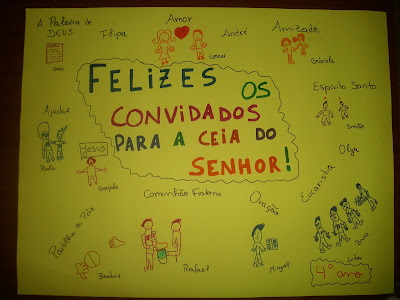 A Palavra de
DEUS
Filipa
Amor
André
Amizade
Leonor
Gabriela
FELIZES OS
CONVIDADOS
PARA A CEIA DO
SENHOR!
Espírito Santo
Simão
Ajudar
Paula
Jesus
Gonçalo
Olga
Comunhão Fraterna
Oração
Eucaristia
Partilha do Pão
Beatriz
Rafael
Miguel
4º ano